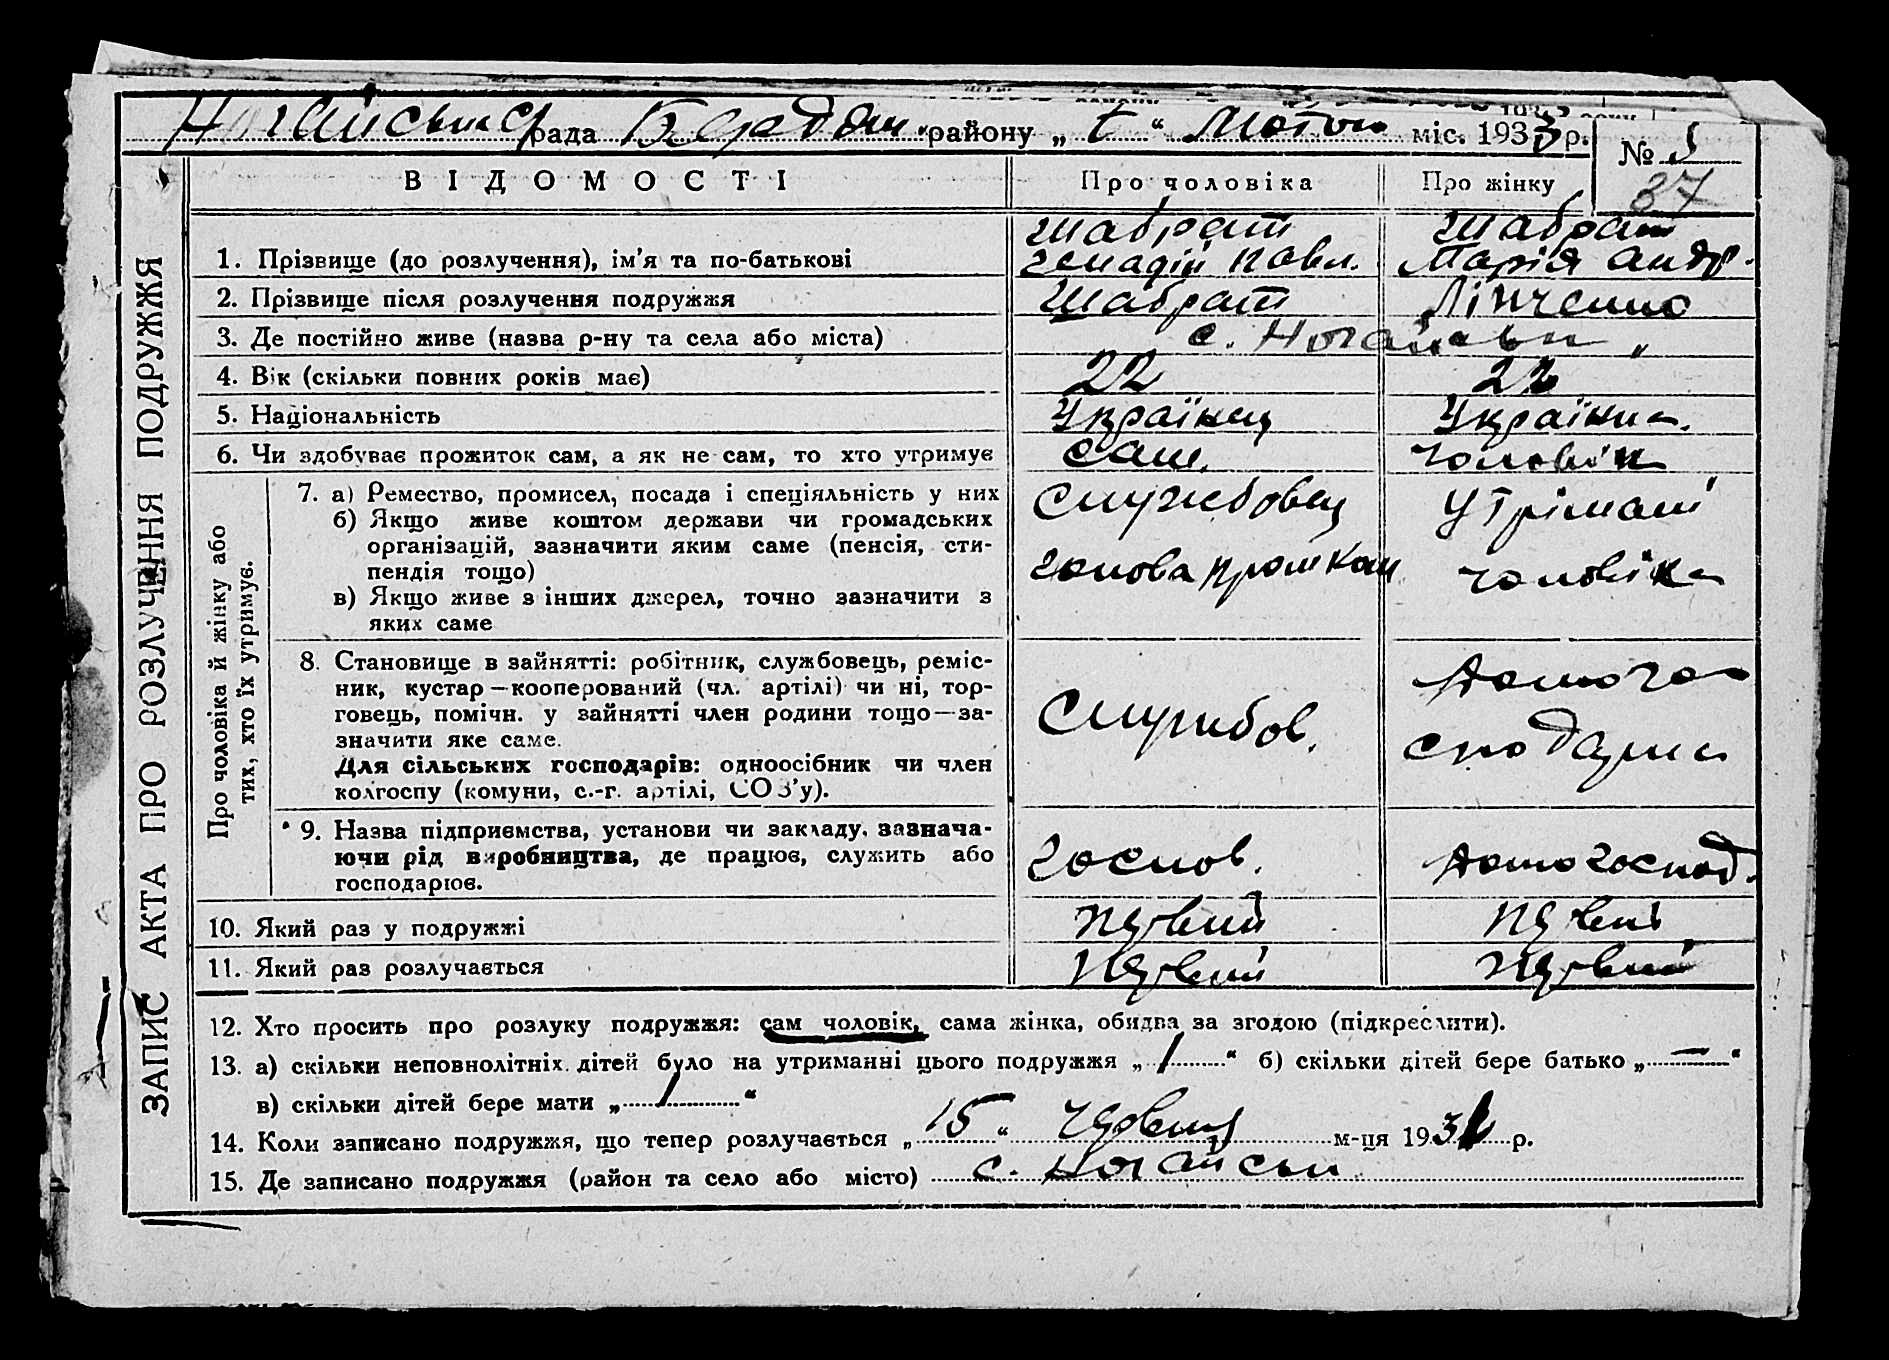 Ногайська рада Бердян. району „ " Лютого міс. 1933 р.
№
37
ВІДОМОСТІ
Про чоловіка
Про жінку
ЗАПИС АКТА ПРО РОЗЛУЧЕННЯ ПОДРУЖЖЯ
1. Прізвище (до розлучення), ім'я та по-батькові
Шабрат
Генадій Павл.
Шабрат
Марія Андр.
2. Прізвище після розлучення подружжя
Шабрат
Лінченко
3. Де постійно живе (назва р-ну та села або міста)
с. Ногайськ
4. Вік (скільки повних років має)
22
22
5. Національність
Українец
Українка.
6. Чи здобуває прожиток сам, а як не сам, то хто утримує
сам.
чоловік
Про чоловіка й жінку або
тих, хто їх утримує.
7. а) Ремество, промисел, посада і спеціяльність у них
б) Якщо живе коштом держави чи громадських
організацій, зазначити яким саме (пенсія, сти-
пендія тощо)
в) Якщо живе з інших джерел, точно зазначити з
яких саме
Службовец
голова
Утрімані
чоловіка
8. Становище в зайнятті: робітник, службовець, реміс-
ник, кустар—кооперований (чл. артілі) чи ні, тор-
говець, помічн. у зайнятті член родини тощо—за-
значити яке саме.
Для сільських господарів: одноосібник чи член
колгоспу (комуни, с.-г. артілі, СОЗ'у).
Службов.
Домого-
сподарка
9. Назва підприємства, установи чи закладу, зазнача-
ючи рід виробництва, де працює, служить або
господарює.
Домогоспод.
10. Який раз у подружжі
Первий
Первий
11. Який раз розлучається
Первий
Первий
12. Хто просить про розлуку подружжя: сам чоловік, сама жінка, обидва за згодою (підкреслити).
13. а) скільки неповнолітніх дітей було на утриманні цього подружжя „ 1 " б) скільки дітей бере батько „ — "
в) скільки дітей бере мати „ 1 "
14. Коли записано подружжя, що тепер розлучається „ 15 " м-ця 193 р.
15. Де записано подружжя (район та село або місто) с. Ногайськ